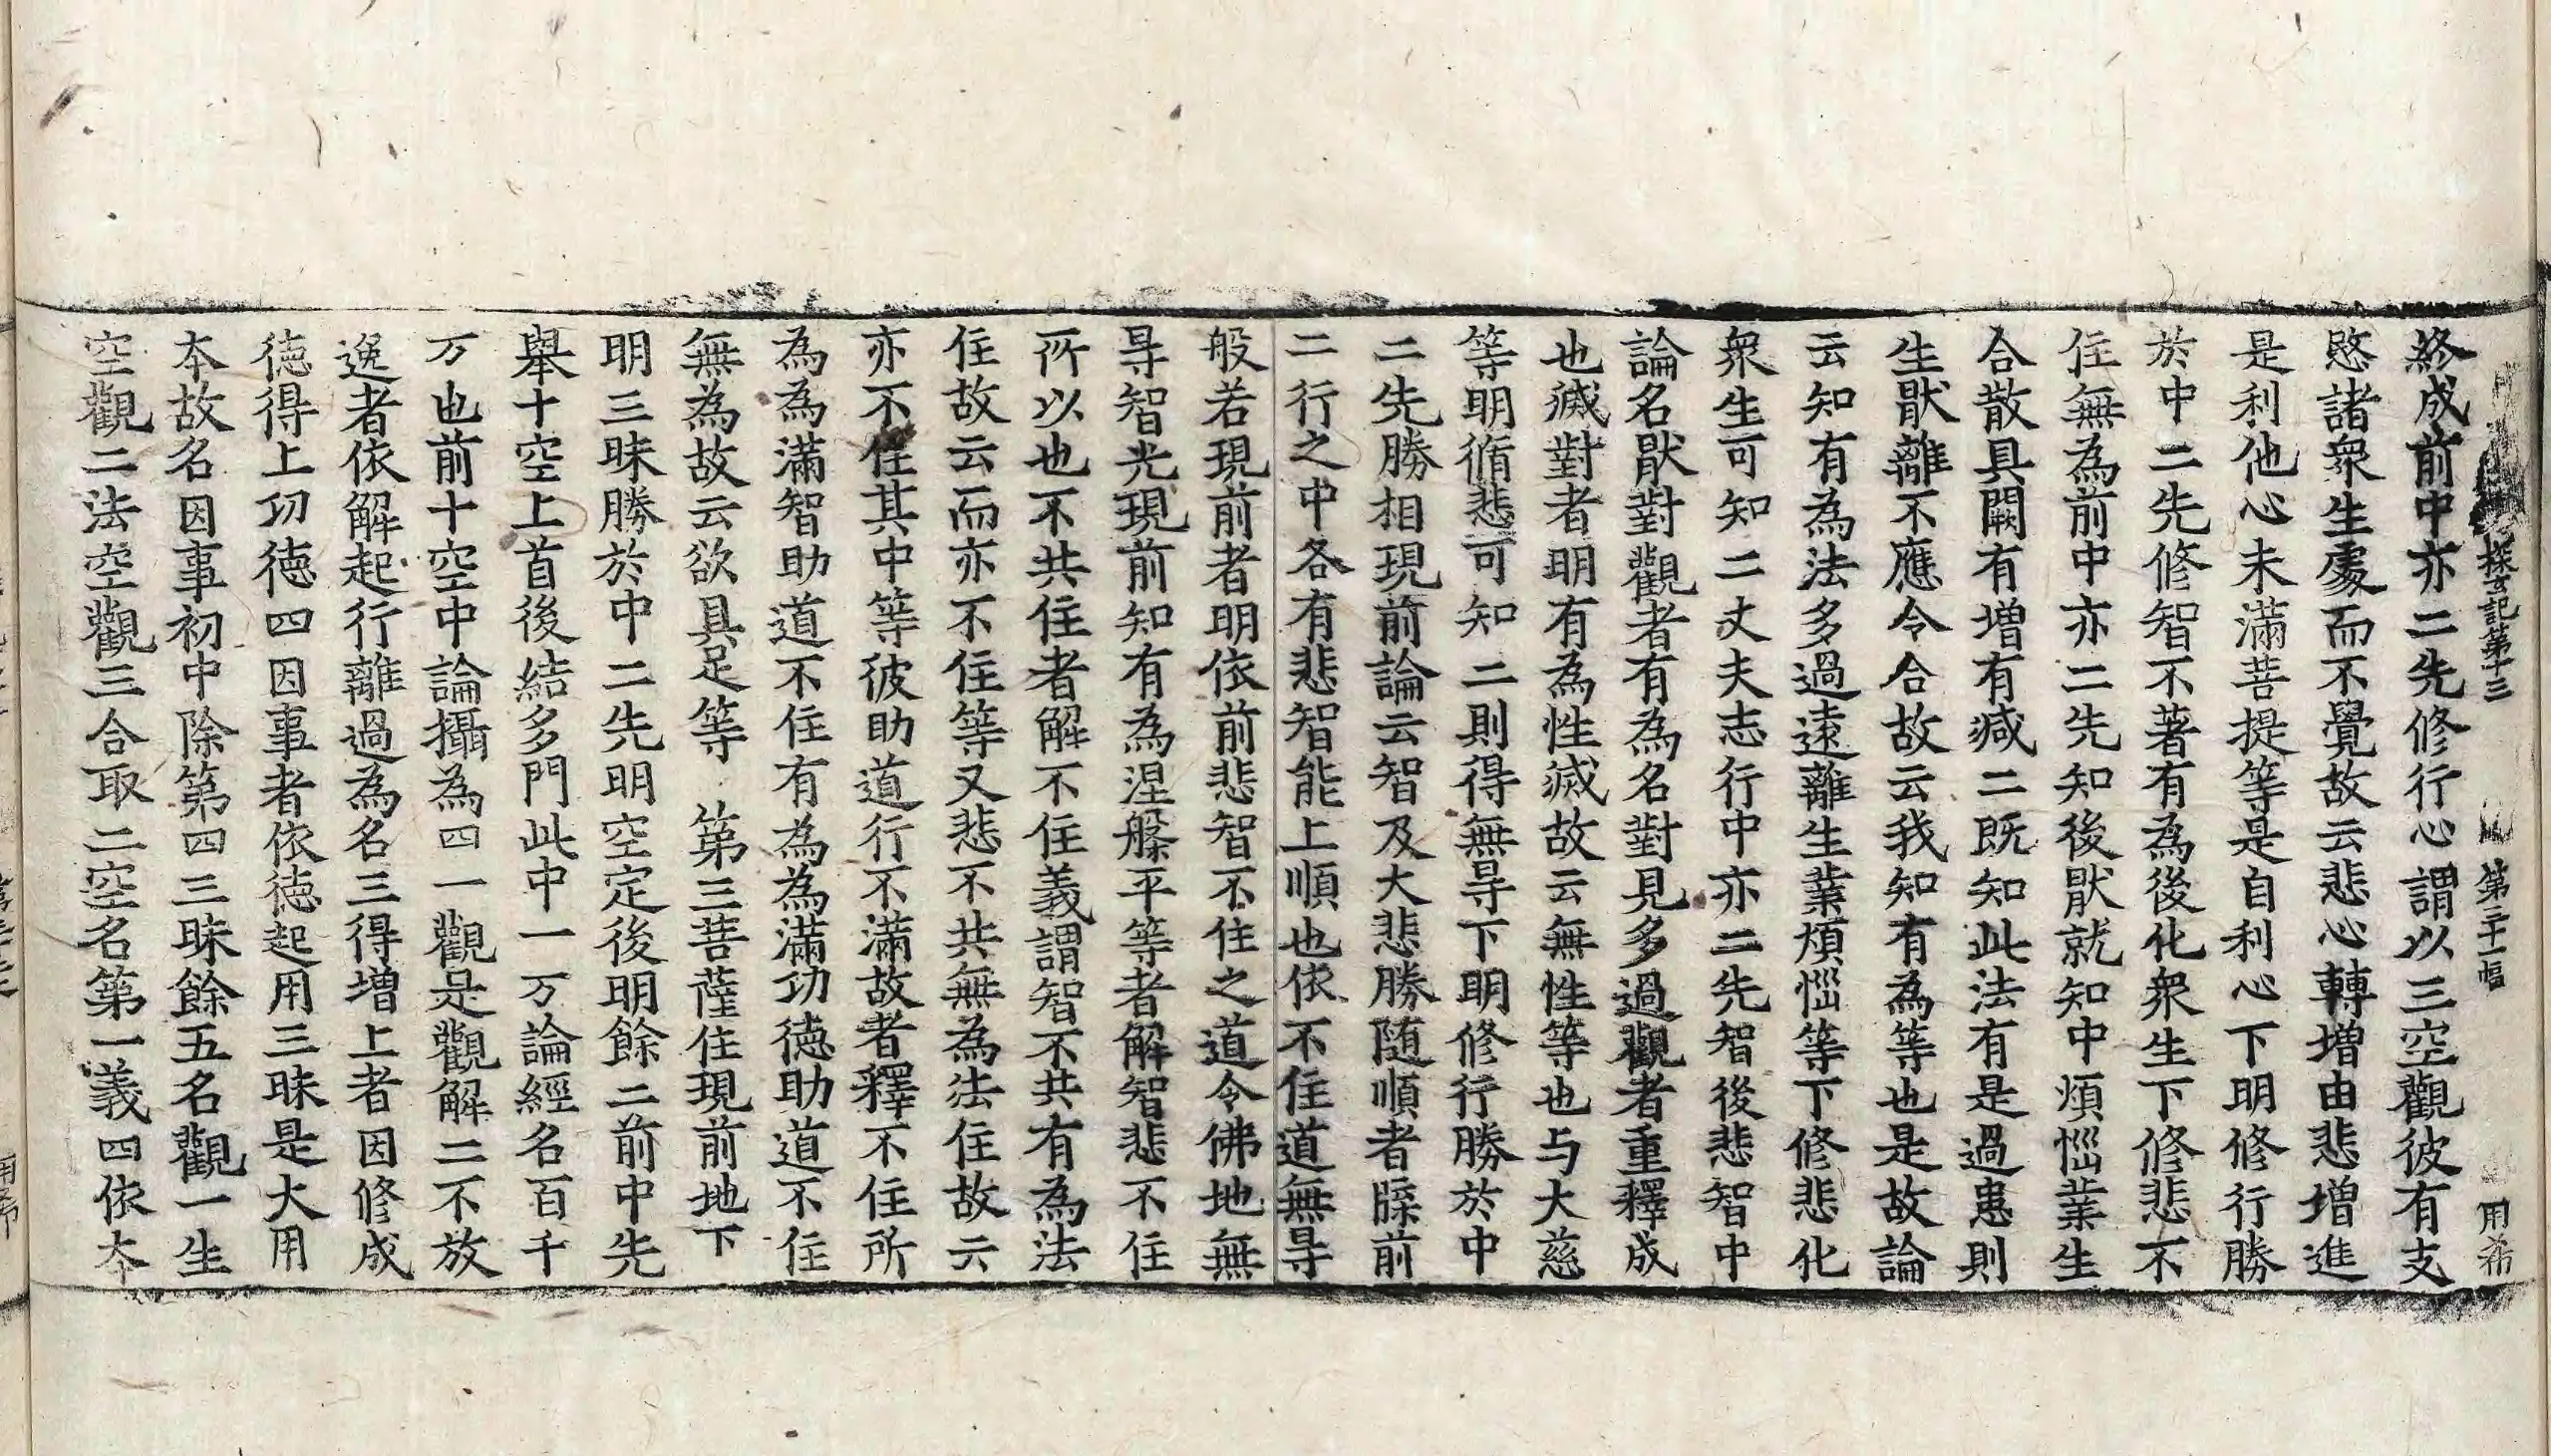 探玄記第十三 第二十一幅 用希
終成前中亦二先修行心謂以三空觀彼有支
愍諸衆生處而不覺故云悲心轉增由悲增進
是利他心未滿菩提等是自利心下明修行勝
於中二先修智不著有為後化衆生下修悲不
住無為前中亦二先知後猒就知中煩惱業生
合散具闕有增有减二既知此法有是過患則
生猒離不應令合故云我知有為等也是故論
云知有為法多過遠離生業煩惱等下修悲化
衆生可知二丈夫志行中亦二先智後悲智中
論名猒對觀者有為名對見多過觀者重釋成
也滅對者明有為性滅故云無性等也与大慈
等明脩悲可知二則得無㝵下明修行勝於中
二先勝相現前論云智及大悲勝随順者牒前
二行之中各有悲智能上順也依不住道無㝵
般若現前者明依前悲智不住之道令佛地無
㝵智光現前知有為涅槃平等者解智悲不住
所以也不共住者解不住義謂智不共有為法
住故云而亦不住等又悲不共無為法住故云
亦不住其中等彼助道行不滿故者釋不住所
為為滿智助道不住有為為滿功德助道不住
無為故云欲具足等 第三菩薩住現前地下
明三昧勝於中二先明空定後明餘二前中先
舉十空上首後結多門此中一万論經名百千
万也前十空中論攝為四一觀是觀解二不放
逸者依解起行離過為名三得增上者因修成
德得上功德四因事者依德起用三昧是大用
本故名因事初中除第四三昧餘五名觀一生
空觀二法空觀三合取二空名第一義四依本